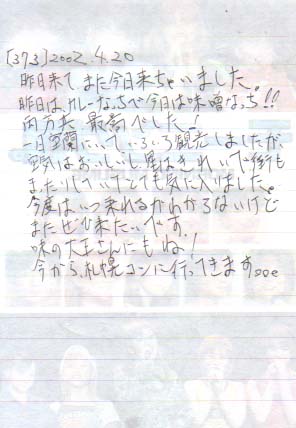 [373] 2002.4.20
昨日来て、また今日来ちゃいました。
昨日は、カレーなっちで今日は味噌なっち!!
両方共、最高でした!
一日室蘭にいていろいろ観光しましたが、
空気はおいしいし海はきれいで街も
まったりしていてとても気に入りました。
今度はいつ来れるかわからないけど
またぜひ来たいです。
味の大王さんにもね!
今から、札幌コンに行ってきます。。。